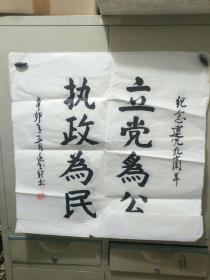 纪念建党九十周年
立党为公
执政為民
辛卯年五月